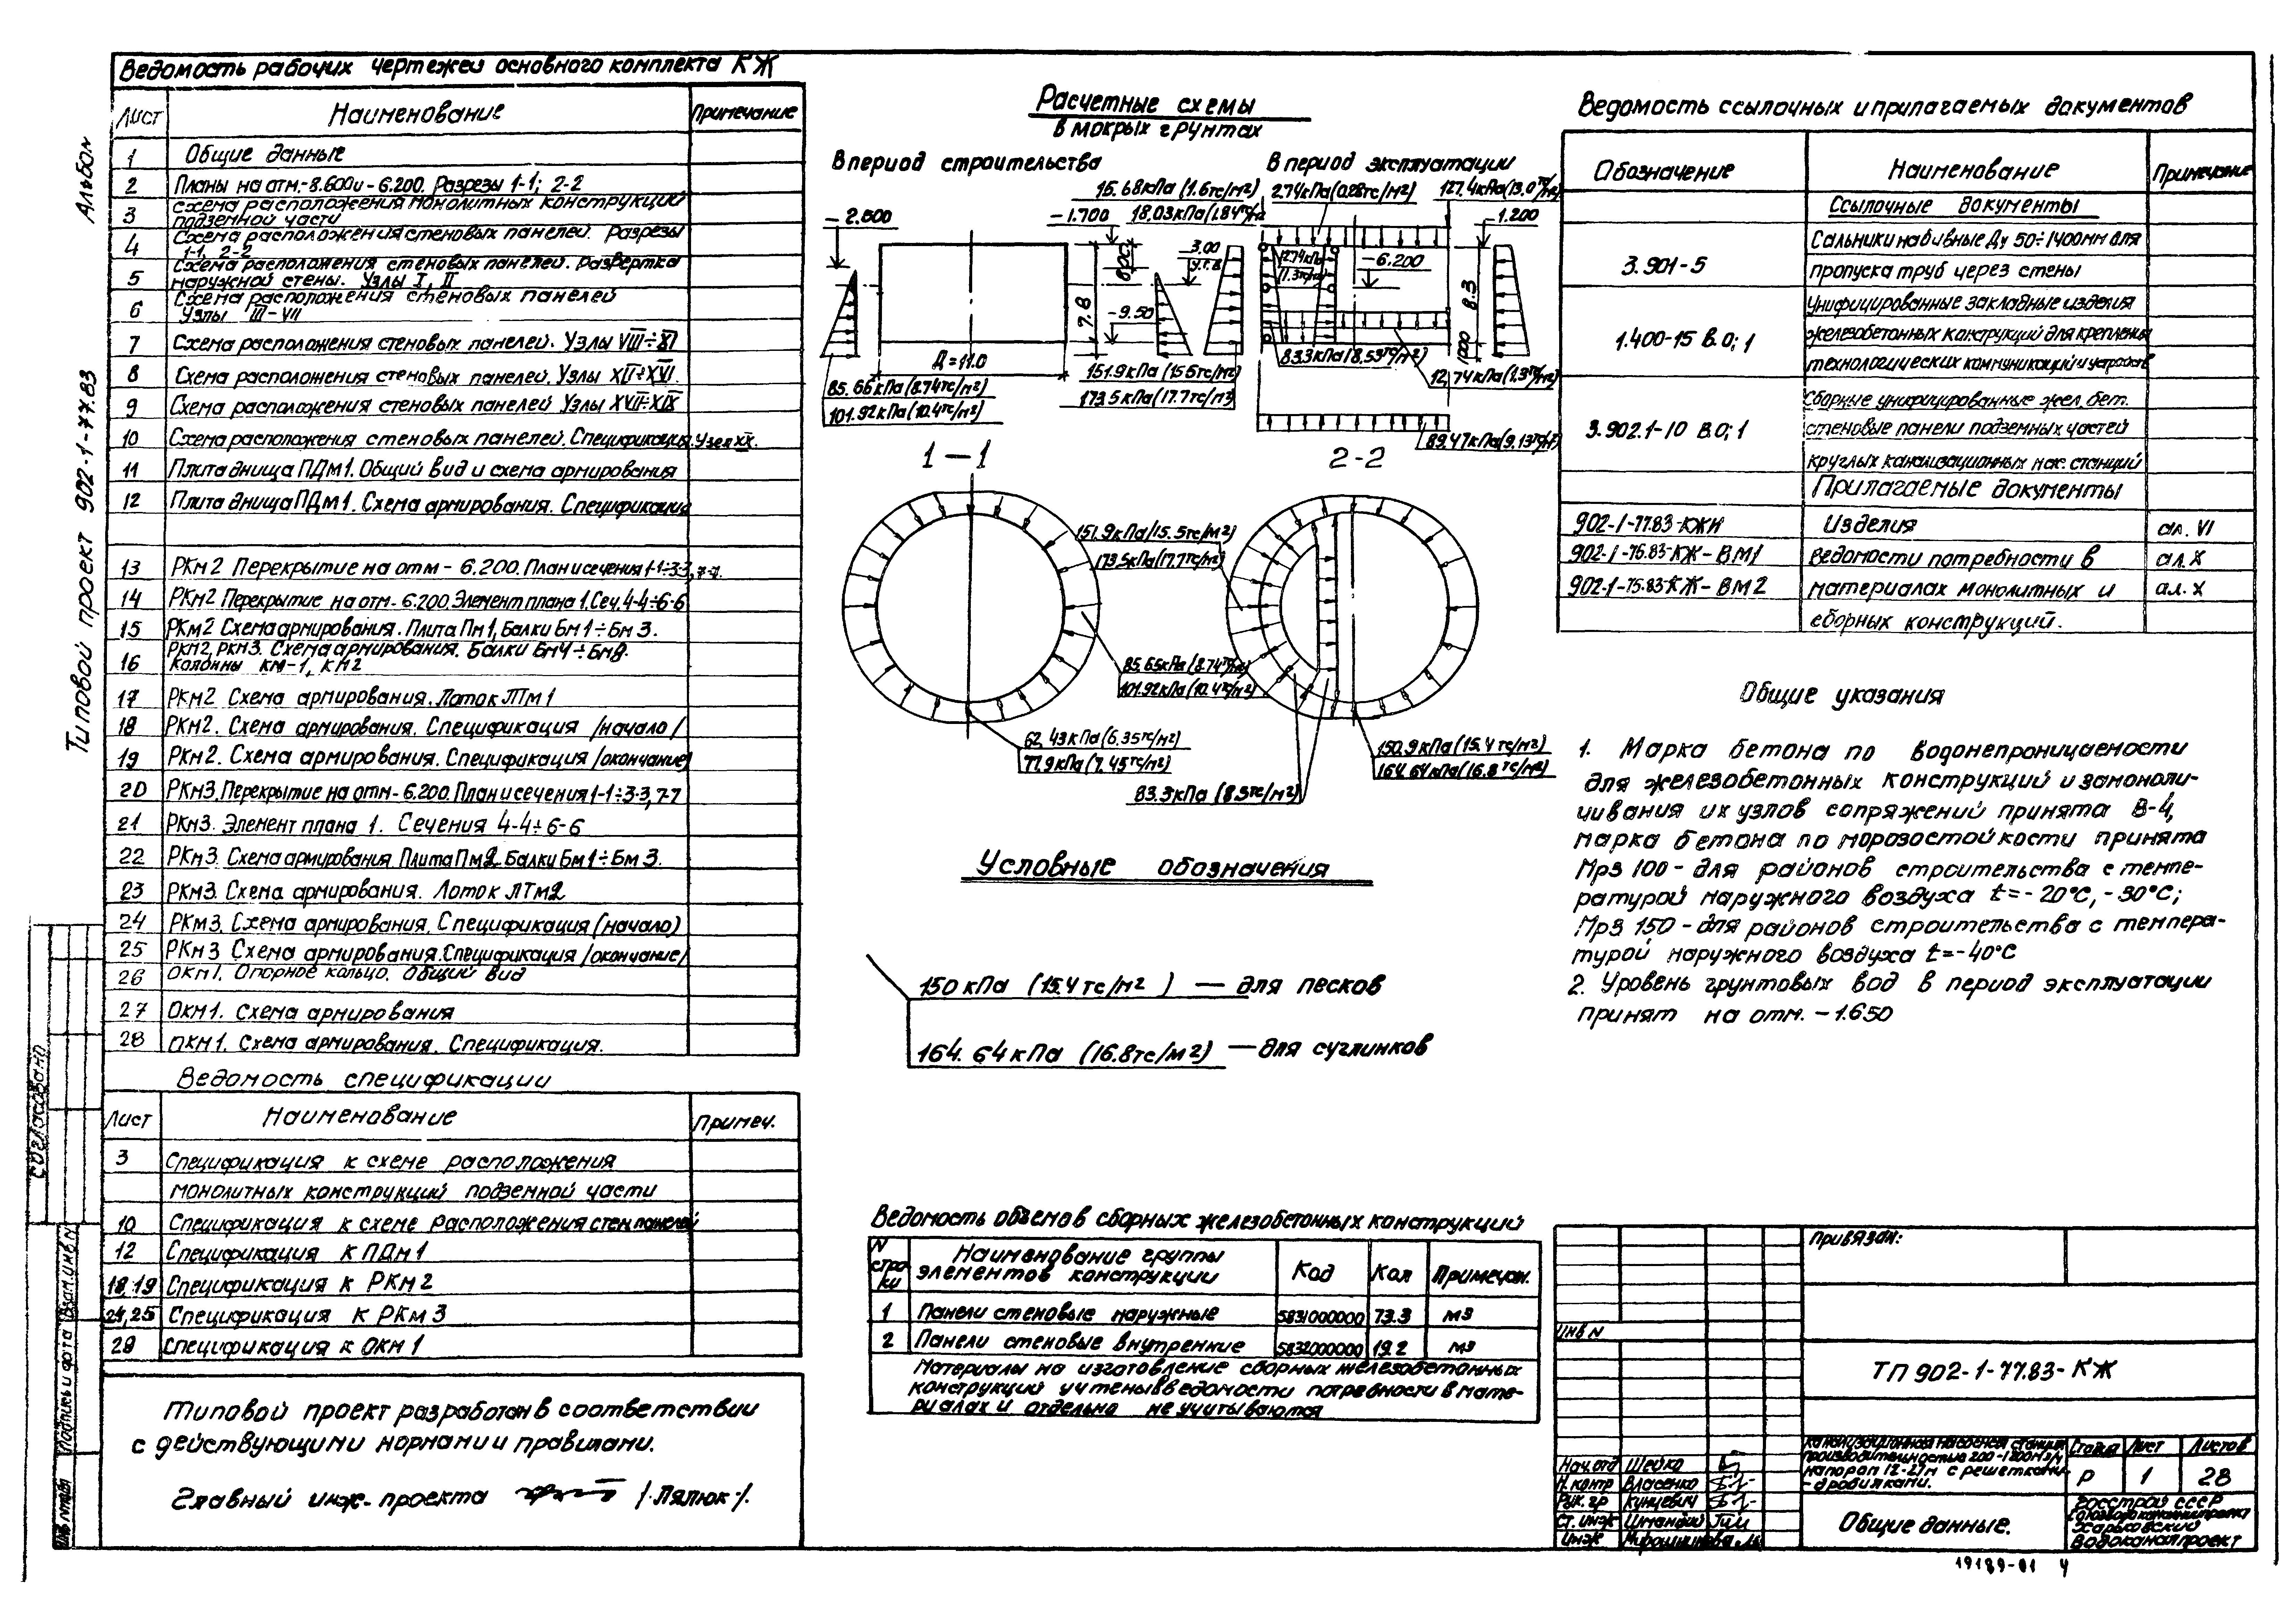 Альбом
Типовой проект 902-1-77.83
Ведомость рабочих чертежей основного комплекта КЖ
Лист Наименование Примечание
1 Общие данные
2 Планы на отм.-8.600и-6.200. Разрезы 1-1; 2-2
3 Схема расположения монолитных конструкций
подземной части
4 Схема расположения стеновых панелей. Разрезы
1-1, 2-2
5 Схема расположения стеновых панелей. Развертка
наружной стены. Узлы I, II
6 Схема расположения стеновых панелей
Узлы III-VII
7 Схема расположения стеновых панелей. Узлы VIII÷XI
8 Схема расположения стеновых панелей. Узлы XII÷XVI.
9 Схема расположения стеновых панелей Узлы XVII÷XIX
10 Схема расположения стеновых панелей. Спецификация. Узел XX.
11 Плита днища ПДм1. Общий вид и схема армирования
12 Плита днища ПДм1. Схема армирования. Спецификация
13 РКм2 Перекрытие на отм-6.200. План и сечения 1-1÷3-3, 7-7.
14 РКм2 Перекрытие на отм-6.200. Элемент плана 1. Сеч. 4-4÷6-6
15 РКм2 Схема армирования. Плита Пм1, Балки Бм1÷Бм3.
16 РКм2, РКм3. Схема армирования. Балки Бм4÷Бм8.
Колонны КМ-1, КМ2
17 РКм2 Схема армирования. Лоток ЛТм1
18 РКм2. Схема армирования. Спецификация /начало/
19 РКм2. Схема армирования. Спецификация /окончание/
20 РКм3. Перекрытие на отм-6.200. План и сечения 1-1÷3-3, 7-7
21 РКм3. Элемент плана 1. Сечения 4-4÷6-6
22 РКм3. Схема армирования Плита Пм2. Балки Бм1÷Бм3.
23 РКм3. Схема армирования. Лоток ЛТм2
24 РКм3. Схема армирования. Спецификация (начало)
25 РКм3 Схема армирования. Спецификация /окончание/
26 ОКм1. Опорное кольцо. Общий вид
27 ОКм1. Схема армирования
28 ОКм1. Схема армирования. Спецификация.
Ведомость спецификации
Лист Наименование Примеч.
3 Спецификация к схеме расположения
монолитных конструкций подземной части
10 Спецификация к схеме расположения стен. панелей
12 Спецификация к ПДм1
18,19 Спецификация к РКм2
24,25 Спецификация к РКм3
28 Спецификация к ОКм1
Типовой проект разработан в соответствии
с действующими нормами и правилами.
Главный инж. проекта /Лялюк/.
Расчетные схемы
в мокрых грунтах
В период строительства
В период эксплуатации
15.68кПа (1.6тс/м2) 2.74кПа(0.28тс/м2) 127.4кПа(13.0тс/м2)
-2.800 -1.700 18.03кПа(1.84тс/м2 -1.200
3.00
У.Г.В.
12.74кПа
(1.3тс/м2)
-6.200
7.8
-9.50
8.3
1000
Д=11.0
83.3кПа(8.53тс/м2)
85.66кПа(8.74тс/м2) 151.9кПа(15.5тс/м2) 12.74кПа(1.3тс/м2)
101.92кПа(10.4тс/м2) 173.5кПа(17.7тс/м2)
89.47кПа(9.13тс/м2)
1-1 2-2
151.9кПа(15.5тс/м2)
173.5кПа(17.7тс/м2)
85.65кПа(8.74тс/м2)
101.92кПа(10.4тс/м2)
62.43кПа(6.35тс/м2) 150.9кПа(15.4тс/м2)
77.9кПа(7.45тс/м2) 164.64кПа(16.8тс/м2)
83.3кПа(8.5тс/м2)
Условные обозначения
150кПа (15.4тс/м2) — для песков
164.64кПа (16.8тс/м2) — для суглинков
Ведомость объемов сборных железобетонных конструкций
N строки Наименование группы элементов конструкции Код Кол Примечан.
1 Панели стеновые наружные 5831000000 73.3 м3
2 Панели стеновые внутренние 5832000000 19.2 м3
Материалы на изготовление сборных железобетонных
конструкций учтены в ведомости потребности в мате-
риалах и отдельно не учитываются
Ведомость ссылочных и прилагаемых документов
Обозначение Наименование Примечание
Ссылочные документы
Сальники набивные Ду 50÷1400мм для
3.901-5 пропуска труб через стены
Унифицированные закладные изделия
1.400-15 В.0;1 железобетонных конструкций для крепления
технологических коммуникаций и устройств
Сборные унифицированные жел. бет.
3.902.1-10 В.0;1 стеновые панели подземных частей
круглых канализационных нас. станций
Прилагаемые документы
902-1-77.83-КЖИ Изделия ал. VI
902-1-76.83-КЖ-ВМ1 Ведомости потребности в ал. X
902-1-75.83-КЖ-ВМ2 материалах монолитных и ал. X
сборных конструкций.
Общие указания
1. Марка бетона по водонепроницаемости
для железобетонных конструкций и замоноли-
чивания их узлов сопряжений принята В-4,
марка бетона по морозостойкости принята
Мрз 100-для районов строительства с темпе-
ратурой наружного воздуха t=-20°С, -30°С;
Мрз 150-для районов строительства с темпера-
турой наружного воздуха t=-40°С
2. Уровень грунтовых вод в период эксплуатации
принят на отм. -1.650
Привязан:
Инв N
ТП 902-1-77.83-КЖ
Канализационная насосная станция
производительностью 200-1200м3/ч
напором 12-27м с решетками
-дробилками.
Стадия Лист Листов
Р 1 28
Нач. отд Шейко
Н. контр Власенко
Рук. гр Кунцевич
Ст. инж
Инж Мирошникова
Общие данные.
Госстрой СССР
Союзводоканалпроект
Харьковский
Водоканалпроект
19189-01 4
Согласовано
Взам. инв N
Подпись и дата